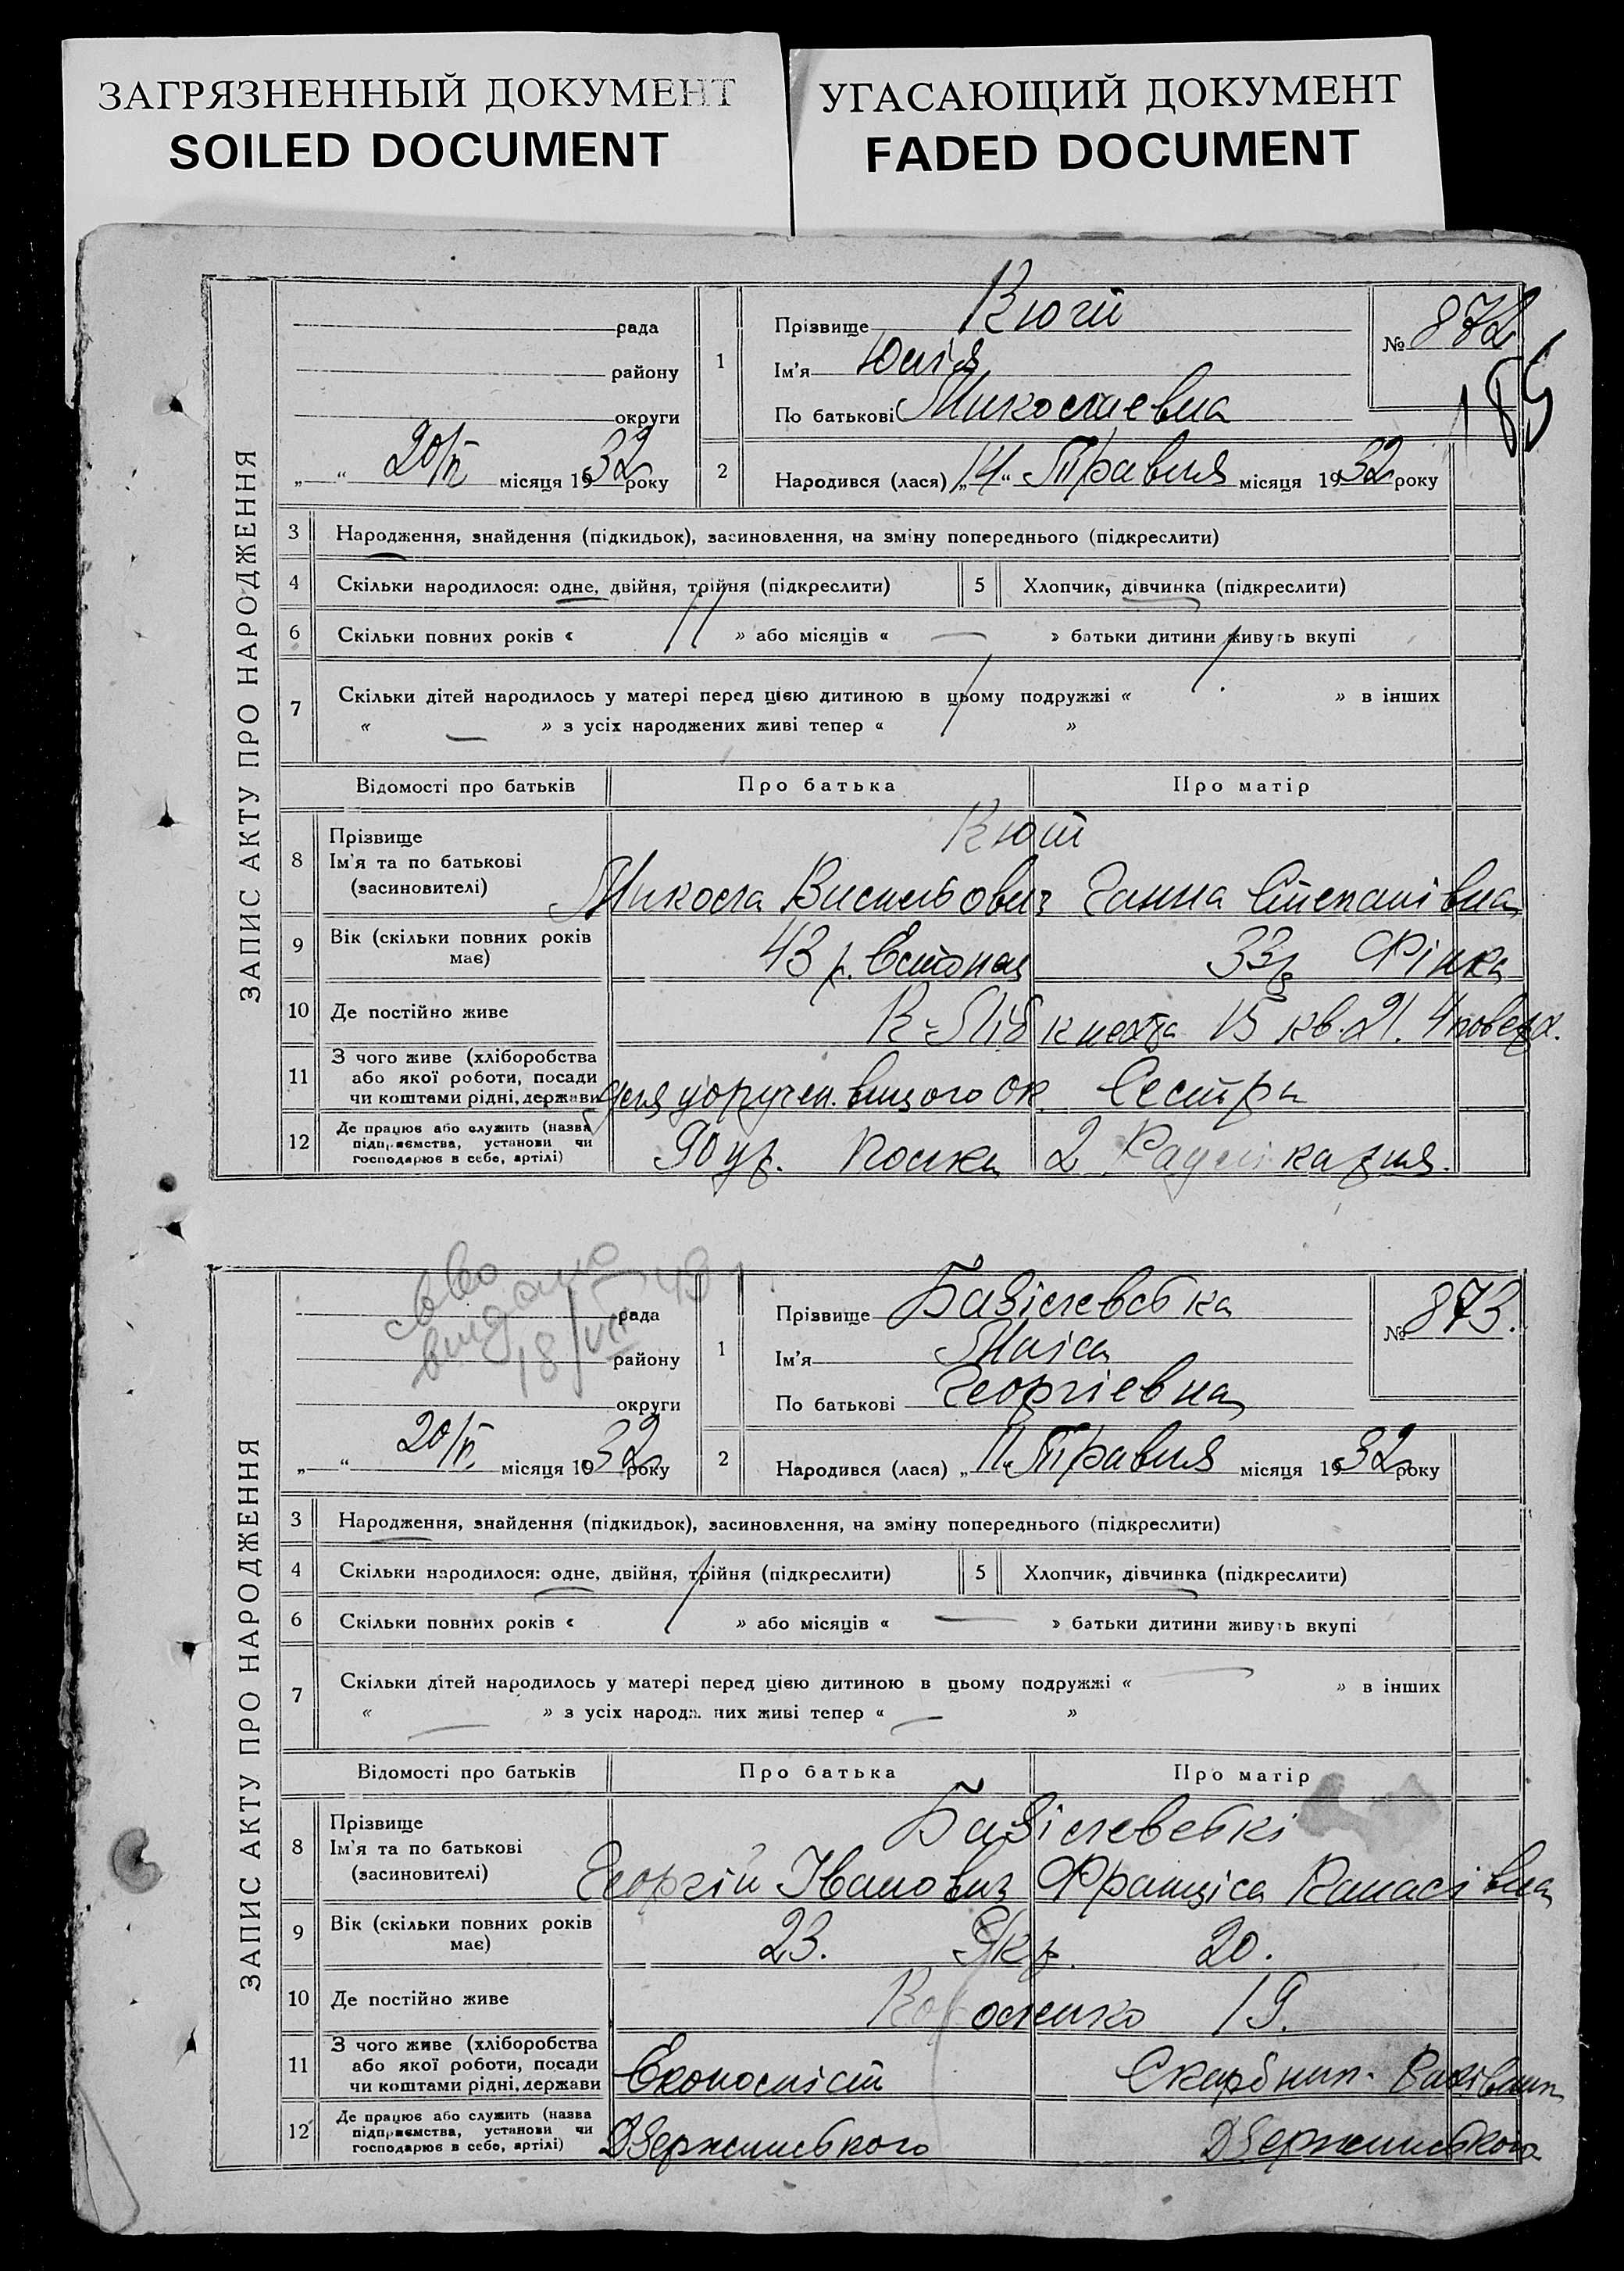 ЗАГРЯЗНЕННЫЙ ДОКУМЕНТ
SOILED DOCUMENT
УГАСАЮЩИЙ ДОКУМЕНТ
FADED DOCUMENT
ЗАПИС АКТУ ПРО НАРОДЖЕННЯ
рада
району
округи
„ “ 20/VI місяця 1932 року
1 Прізвище
Ім'я Юлія
По батькові Миколаевна
№ 872
185
2 Народився (лася) „14“ Травня місяця 1932 року
3 Народження, знайдення (підкидьок), засиновлення, на зміну попереднього (підкреслити)
4 Скільки народилося: одне, двійня, трійня (підкреслити) 5 Хлопчик, дівчинка (підкреслити)
6 Скільки повних років « 11 » або місяців « — » батьки дитини живуть вкупі
7 Скільки дітей народилось у матері перед цією дитиною в цьому подружжі « 1 » в інших
« — » з усіх народжених живі тепер « 1 »
Відомості про батьків Про батька Про матір
8 Прізвище
Ім'я та по батькові Микола Васильович Ганна Степанівна
(засиновителі)
9 Вік (скільки повних років має) 43 р. Естонец 33 р Фінка
10 Де постійно живе К-Лібкнехта 15 кв. 21. 4 поверх.
11 З чого живе (хліборобства або якої роботи, посади чи коштами рідні, держави Сестра
12 Де працює або служить (назва підприємства, установи чи господарює в себе, артілі) 2 Рад лікарня.
ЗАПИС АКТУ ПРО НАРОДЖЕННЯ
сво
видано
18/VII 49
рада
району
округи
„ “ 20/VI місяця 1932 року
1 Прізвище Базілевська
Ім'я Маіса
По батькові Георгіевна
№ 873.
2 Народився (лася) „11“ Травня місяця 1932 року
3 Народження, знайдення (підкидьок), засиновлення, на зміну попереднього (підкреслити)
4 Скільки народилося: одне, двійня, трійня (підкреслити) 5 Хлопчик, дівчинка (підкреслити)
6 Скільки повних років « 1 » або місяців « — » батьки дитини живуть вкупі
7 Скільки дітей народилось у матері перед цією дитиною в цьому подружжі « — » в інших
« — » з усіх народж. них живі тепер « — »
Відомості про батьків Про батька Про матір
8 Прізвище Базілевські
Ім'я та по батькові Георгій Іванович Франціса
(засиновителі)
9 Вік (скільки повних років має) 23. Укр. 20.
10 Де постійно живе Короленко 19.
11 З чого живе (хліборобства або якої роботи, посади чи коштами рідні, держави Економіст Скарбнип.
12 Де працює або служить (назва підприємства, установи чи господарює в себе, артілі) Дзержинського Дзержинського